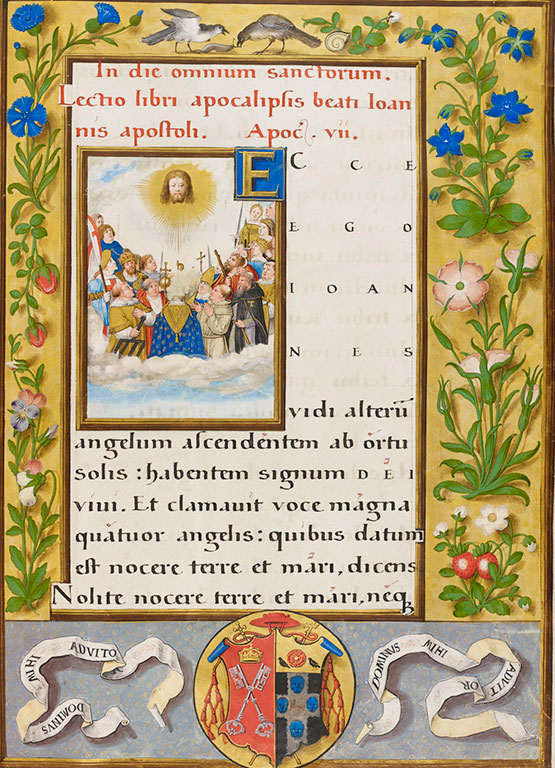 In die omnium sanctorum.
Lectio libri apocalipsis beati Ioan
nis apostoli. Apoc. vii.
ECCE
EGO
IOAN
NES
vidi alterū
angelum ascendētem ab ortu
solis : habentem signum DEI
viui. Et clamauit voce magna
quatuor angelis : quibus datum
est nocere terre et mari, dicens
Nolite nocere terre et mari, neqꝫ
DOMINVS MIHI ADVITO
DOMINVS MIHI ADVIT OR